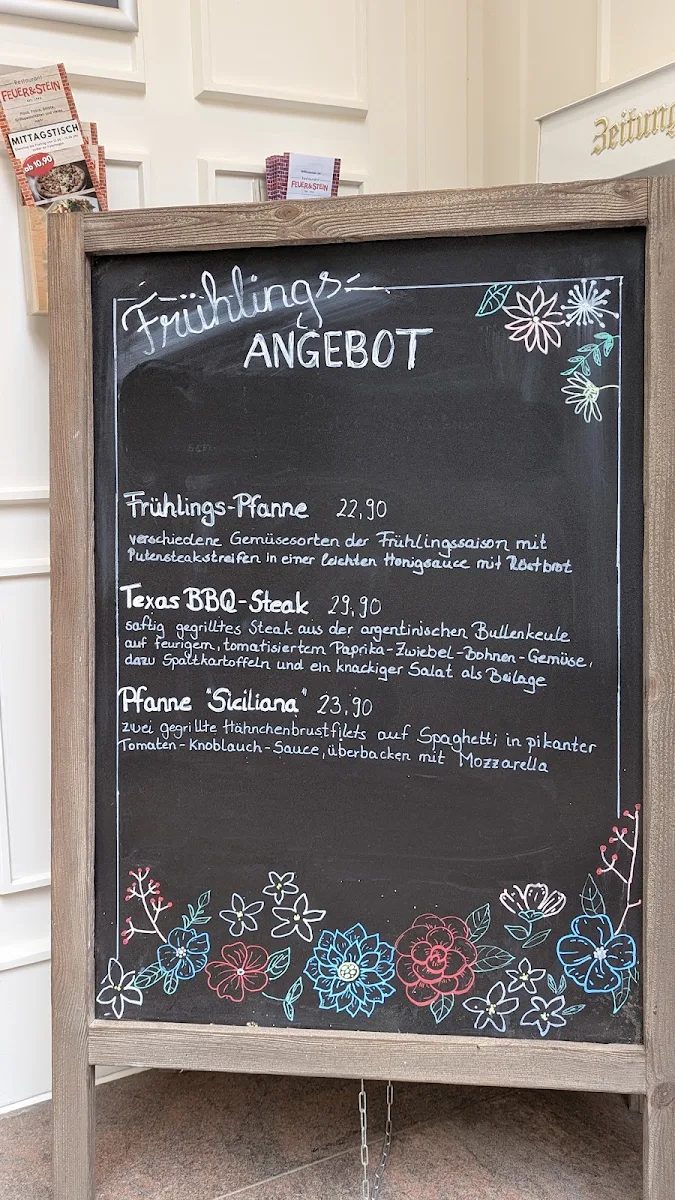 Restaurant
FEUER&STEIN
MITTAGSTISCH
ab 10,90
FEUER&STEIN
Zeitung
Frühlings-
ANGEBOT
Frühlings-Pfanne 22,90
verschiedene Gemüsesorten der Frühlingssaison mit
Putensteakstreifen in einer leichten Honigsauce mit Röstbrot
Texas BBQ-Steak 29,90
saftig gegrilltes Steak aus der argentinischen Bullenkeule
auf feurigem, tomatisiertem Paprika-Zwiebel-Bohnen-Gemüse,
dazu Spaltkartoffeln und ein knackiger Salat als Beilage
Pfanne "Siciliana" 23,90
zwei gegrillte Hähnchenbrustfilets auf Spaghetti in pikanter
Tomaten-Knoblauch-Sauce, überbacken mit Mozzarella